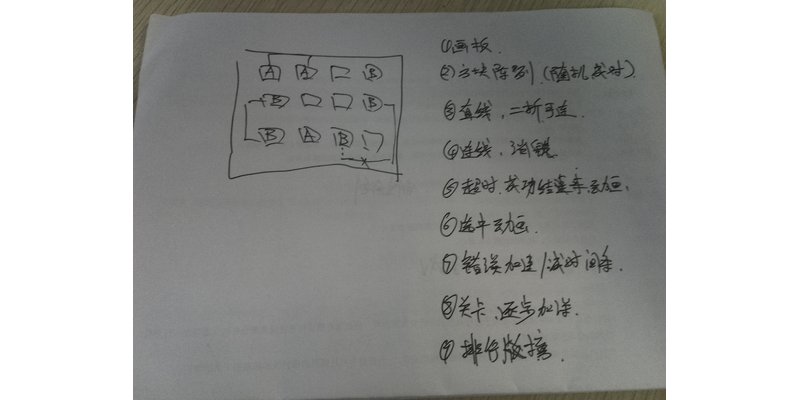 A A B
B B
B A B
①画板.
②方块阵列(随机成对).
③直线,二折可连.
④连线,消除.
⑤超时.成功结束动画.
⑥选中动画.
⑦错误加速/减时间条.
⑧关卡,逐步加深.
⑨排行版